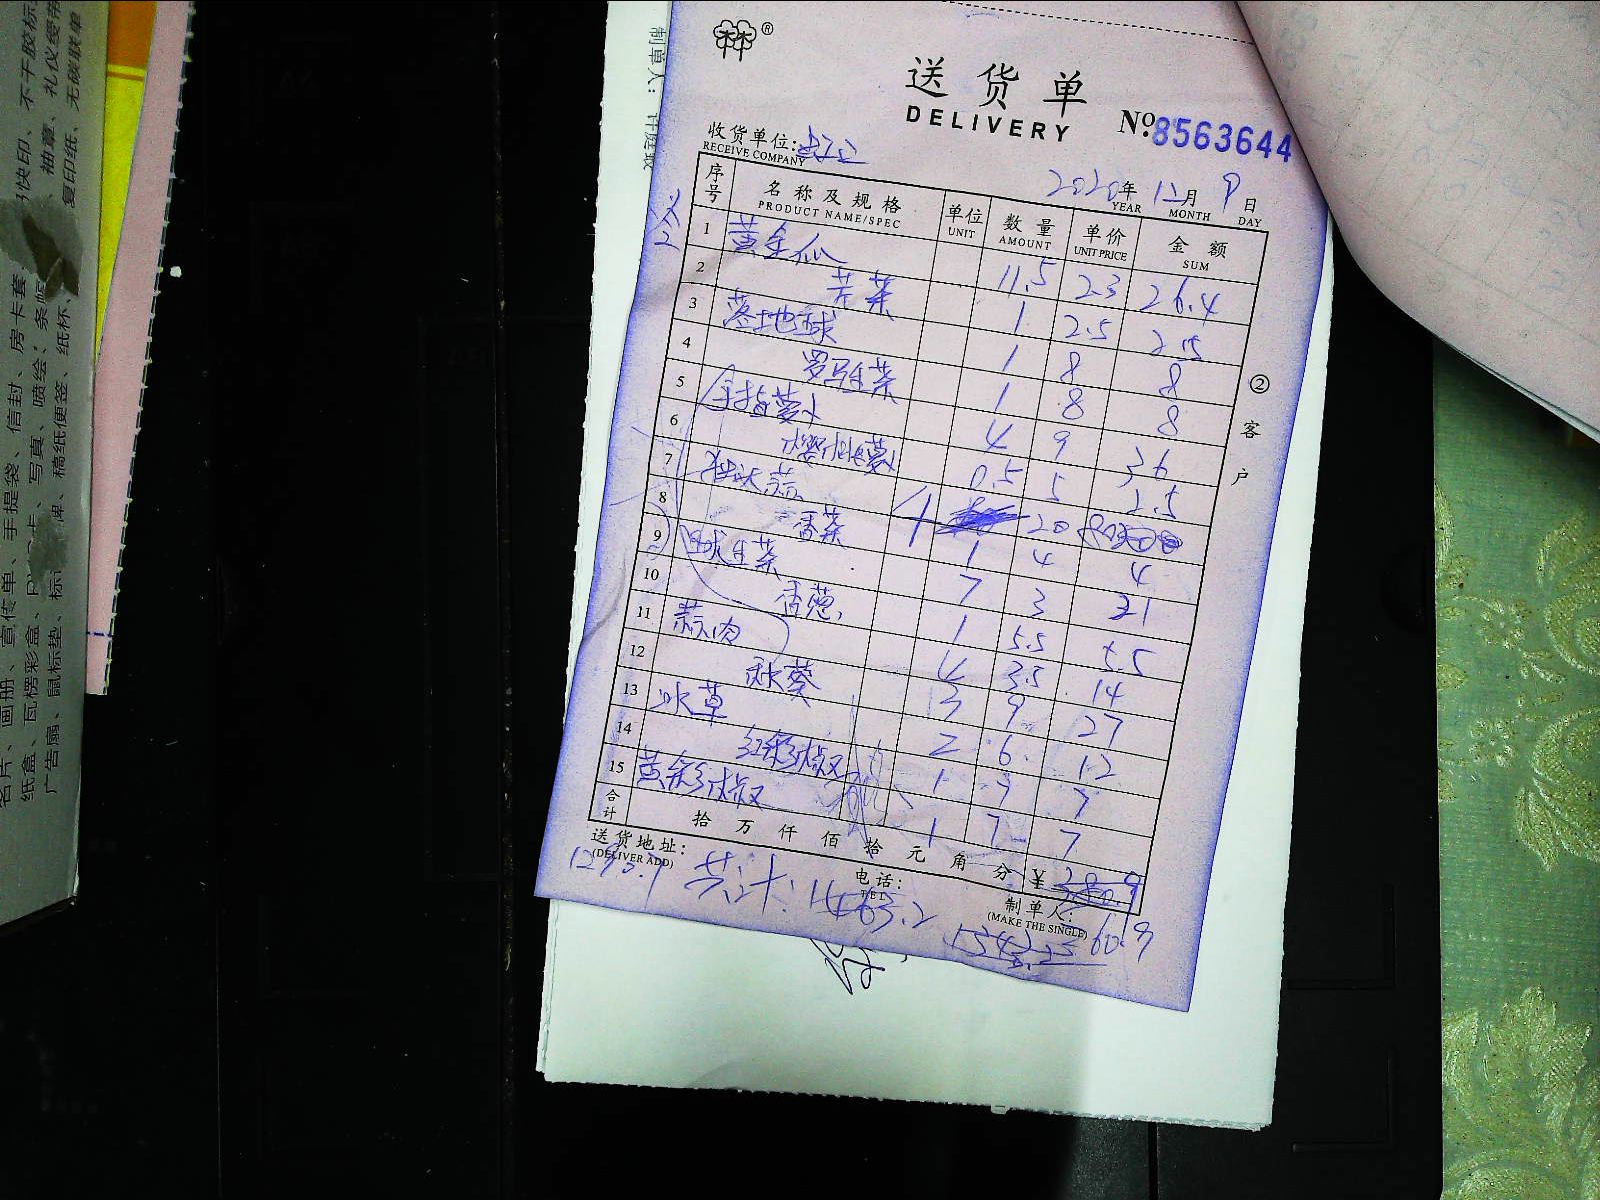 送货单
DELIVERY
№ 8563644
收货单位:
RECEIVE COMPANY
2020年 12月 9日
YEAR MONTH DAY
序号 名称及规格 单位 数量 单价 金额
PRODUCT NAME/SPEC UNIT AMOUNT UNIT PRICE SUM
1 黄金瓜 11.5 2.3 26.4
2 芹菜 1 2.5 2.5
3 落地球 1 8 8
4 罗马生菜 1 8 8
5 手指萝卜 4 9 36
6 樱桃萝卜 0.5 5 2.5
7 独大蒜 1 20
8 香菜 1 4 4
9 球生菜 7 3 21
10 香葱 1 5.5 5.5
11 蒜肉 4 3.5 14
12 秋葵 3 9 27
13 冰草 2 6 12
14 红彩椒 1 7 7
15 黄彩椒 1 7 7
合计 拾 万 仟 佰 拾 元 角 分 ¥
送货地址:
(DELIVER ADD)
电话:
TEL
制单人:
(MAKE THE SINGLE)
共计: 1463.2
② 客户
制单人:
名片、画册、宣传单、手提袋、信封、房卡套
纸盒、瓦楞彩盒、
卡、写真、喷绘;条幅
广告扇、鼠标垫、标
牌、稿纸便签、纸杯、
快印、不干胶标
、抽章、礼仪绶带
复印纸、无碳联单